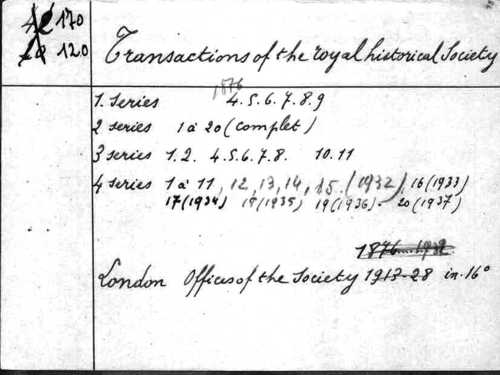 170
120
Transactions of the royal historical Society
1876
1. Series 4.5.6.7.8.9
2 series 1 à 20 (complet)
3 series 1.2. 4.5.6.7.8. 10.11
4 series 1 à 11, 12, 13, 14, 15. (1932), 16 (1933)
17 (1934) 18 (1935) 19 (1936). 20 (1937)
London Offices of the Society 1913-28 in-16°